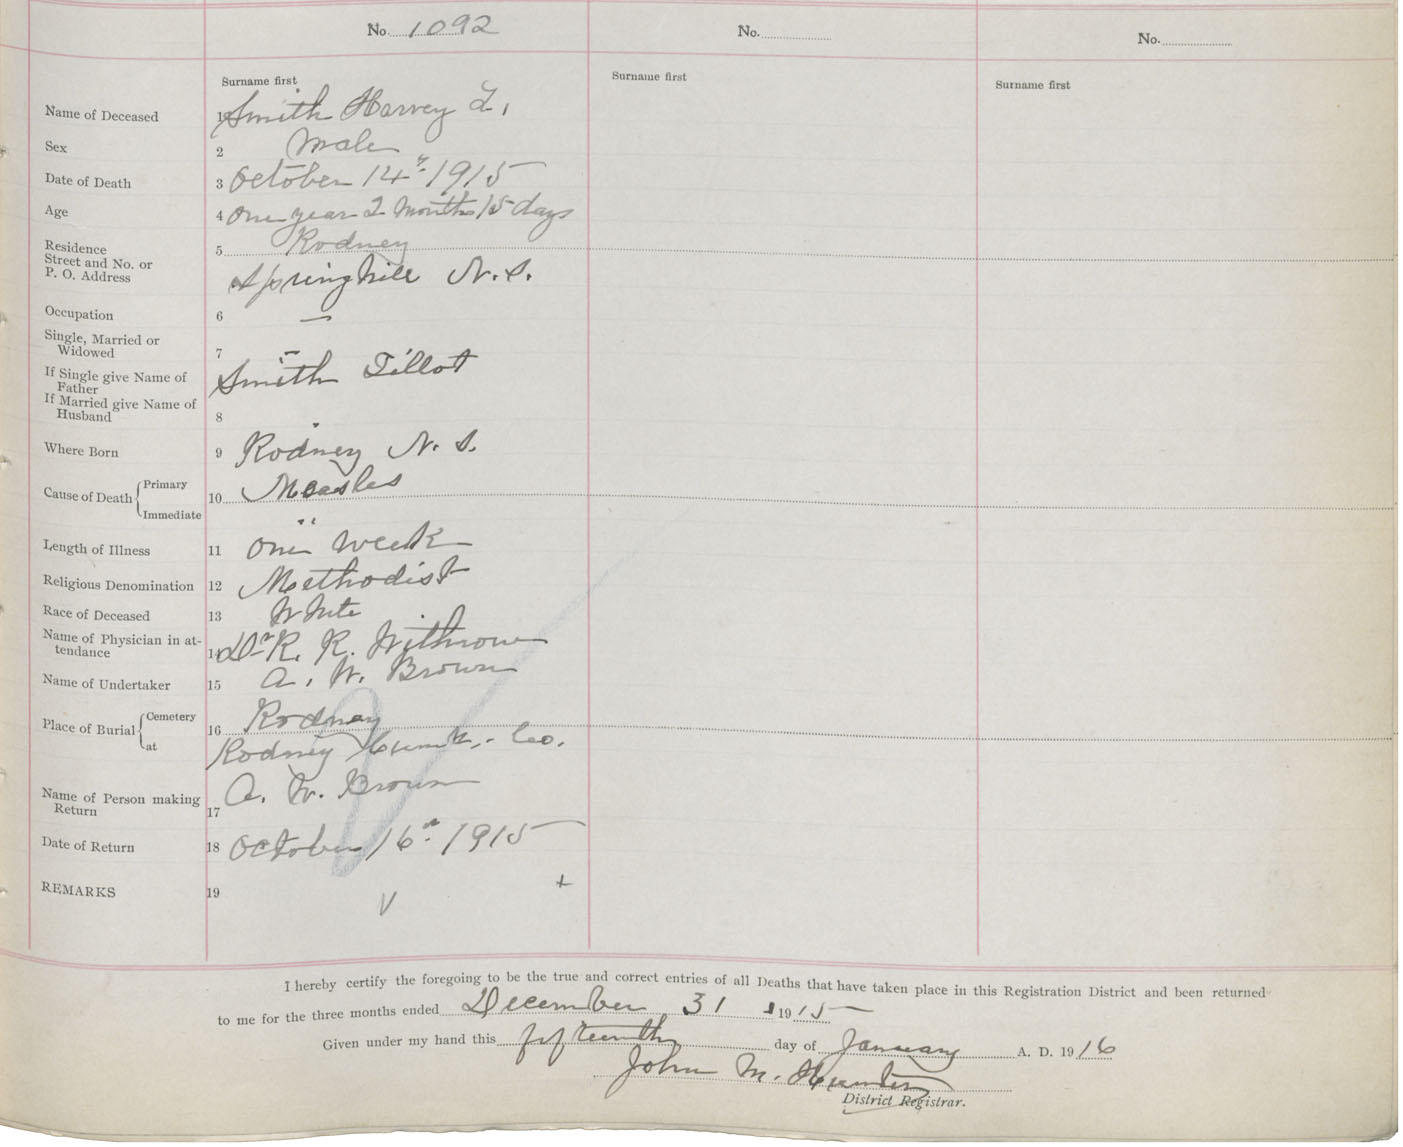 No. 1092 No. No.
Surname first Surname first Surname first
Name of Deceased 1 Smith Harvey L.
Sex 2 Male
Date of Death 3 October 14th 1915
Age 4 One year 2 Months 15 days
Residence 5 Rodney
Street and No. or
P. O. Address Springhill N. S.
Occupation 6 —
Single, Married or
Widowed 7 —
If Single give Name of
Father Smith Tillot
If Married give Name of
Husband 8
Where Born 9 Rodney N. S.
Cause of Death { Primary 10 Measles
Immediate "
Length of Illness 11 One Week
Religious Denomination 12 Methodist
Race of Deceased 13 White
Name of Physician in at-
tendance 14 Dr R. R. Withrow
Name of Undertaker 15 A. W. Brown
Place of Burial { Cemetery 16 Rodney
at Rodney Cumb. Co.
Name of Person making
Return 17 A. W. Brown
Date of Return 18 October 16th 1915
REMARKS 19
I hereby certify the foregoing to be the true and correct entries of all Deaths that have taken place in this Registration District and been returned
to me for the three months ended December 31 1915
Given under my hand this fifteenth day of January A. D. 1916
John M. Hunter
District Registrar.